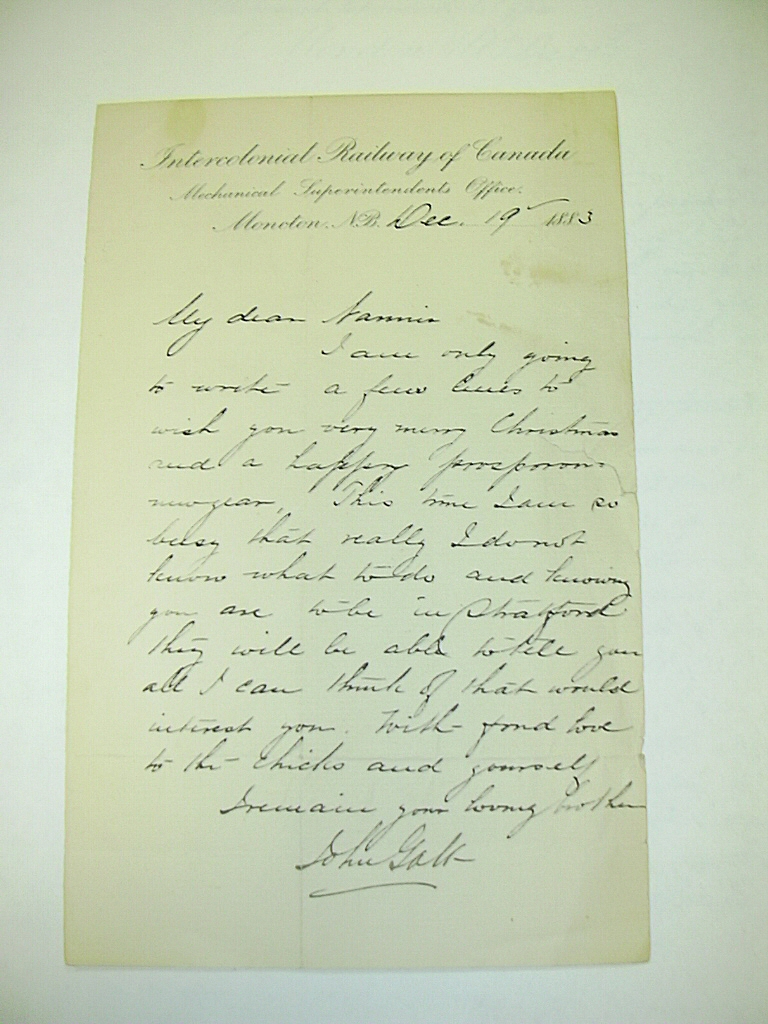 Intercolonial Railway of Canada
Mechanical Superintendents Office.
Moncton. N.B. Dec. 19 1883
My dear Nannie
I am only going
to write a few lines to
wish you very merry Christmas
and a happy prosperous
new year, This time I am so
busy that really I do not
know what to do and knowing
you are to be in Stratford
they will be able to tell you
all I can think of that would
interest you. With fond love
to the chicks and yourself
I remain your loving brother
John Galt